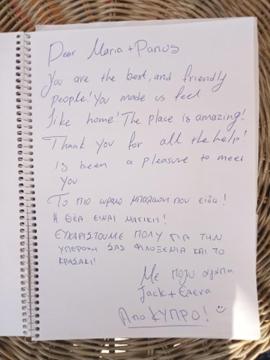 Dear Maria + Panos
You are the best, and friendly
people! You made us feel
like home! The place is amazing!
Thank you for all the help!
Is been a pleasure to meet
you
Το πιο ωραιο μπαλκονι που ειδα!
Η ΘΕΑ ΕΙΝΑΙ ΜΑΓΙΚΗ!
ΕΥΧΑΡΙΣΤΟΥΜΕ ΠΟΛΥ ΓΙΑ ΤΗΝ
ΥΠΕΡΟΧΗ ΣΑΣ ΦΙΛΟΞΕΝΙΑ ΚΑΙ ΤΟ
ΚΡΑΣΑΚΙ!
Με πολυ αγαπη
Jack + Ελενα
Απο ΚΥΠΡΟ!